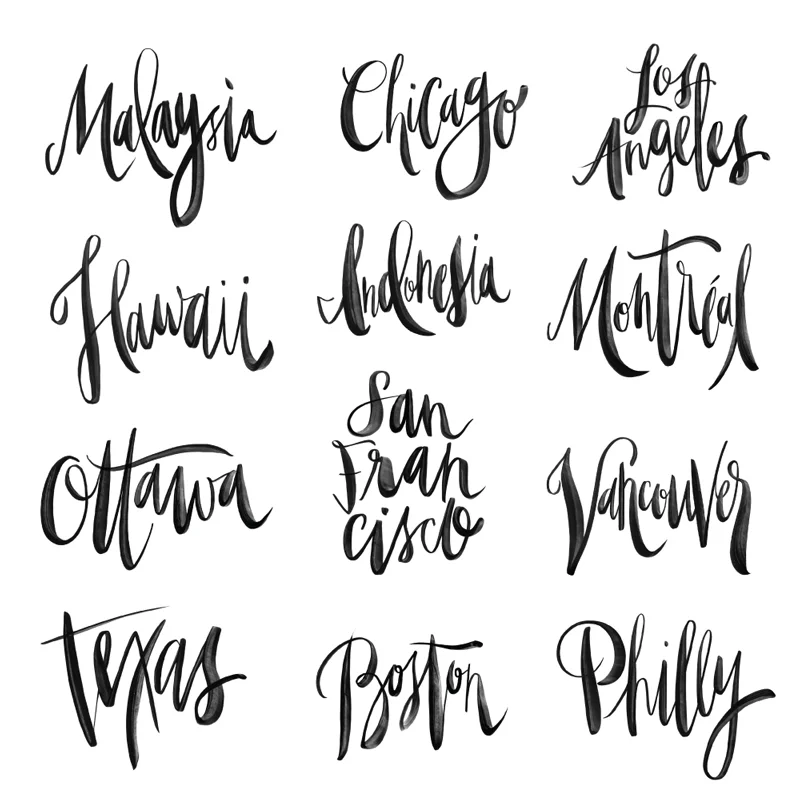 Malaysia
Chicago
Los
Angeles
Hawaii
Indonesia
Montréal
Ottawa
San
Fran
cisco
Vancouver
Texas
Boston
Philly